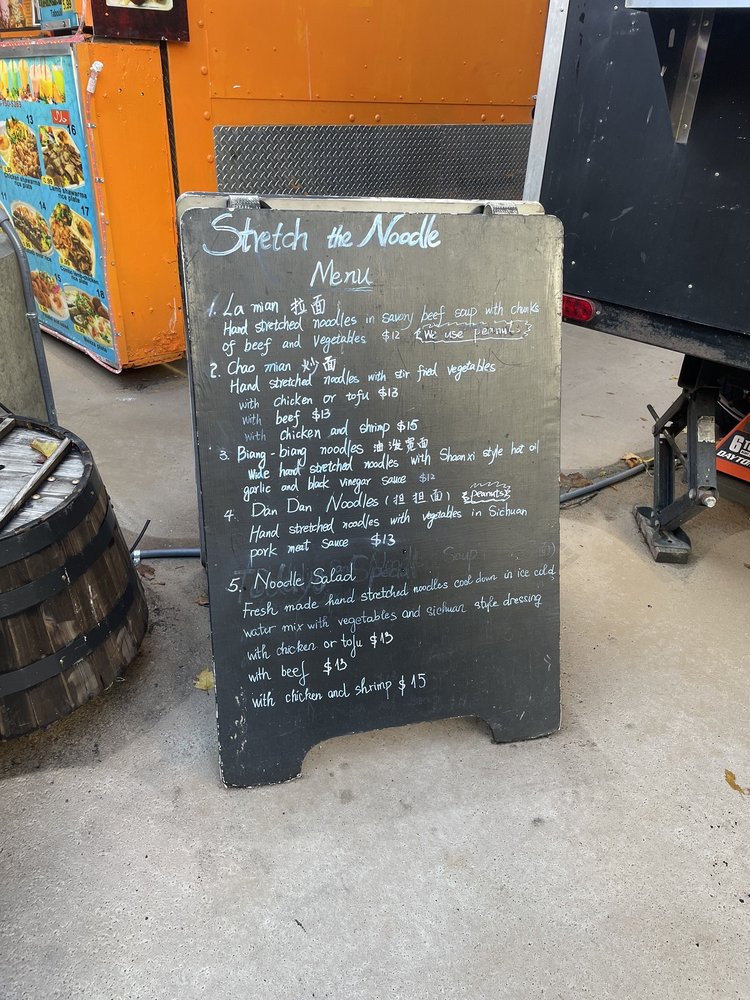 Stretch the Noodle
Menu
1. La mian 拉面
Hand stretched noodles in savory beef soup with chunks
of beef and vegetables $12 We use peanuts
2. Chao mian 炒面
Hand stretched noodles with stir fried vegetables
with chicken or tofu $13
with beef $13
with chicken and shrimp $15
3. Biang-biang noodles 油泼宽面
Wide hand stretched noodles with Shaanxi style hot oil
garlic and black vinegar sauce $12
4. Dan Dan Noodles (担担面) peanuts
Hand stretched noodles with vegetables in Sichuan
pork meat sauce $13
5. Noodle Salad
Fresh made hand stretched noodles cool down in ice cold
water mix with vegetables and sichuan style dressing
with chicken or tofu $13
with beef $13
with chicken and shrimp $15
13
16
11
14
17
15
18
rice plate
rice plate